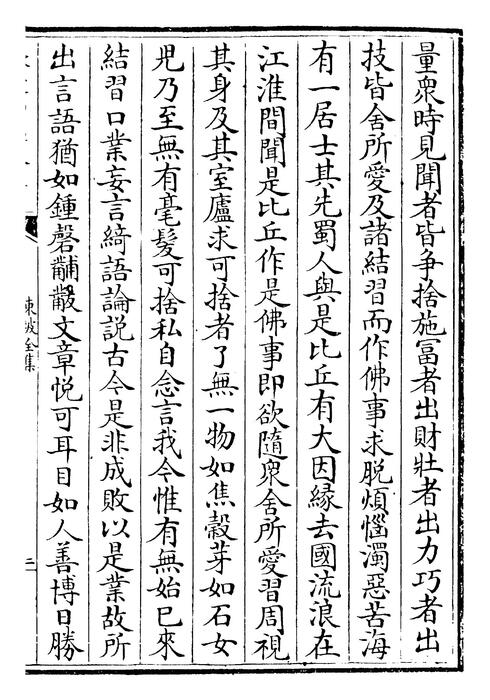 量衆時見聞者皆争捨施冨者出財壯者出力巧者出
技皆舍所愛及諸結習而作佛事求脱煩惱濁惡苦海
有一居士其先蜀人與是比丘有大因縁去國流浪在
江淮間聞是比丘作是佛事即欲隨衆舍所愛習周視
其身及其室廬求可捨者了無一物如焦穀芽如石女
兒乃至無有毫髮可捨私自念言我今惟有無始已來
結習口業妄言綺語論説古今是非成敗以是業故所
出言語猶如鍾磬黼黻文章悅可耳目如人善博日勝
東坡全集
三